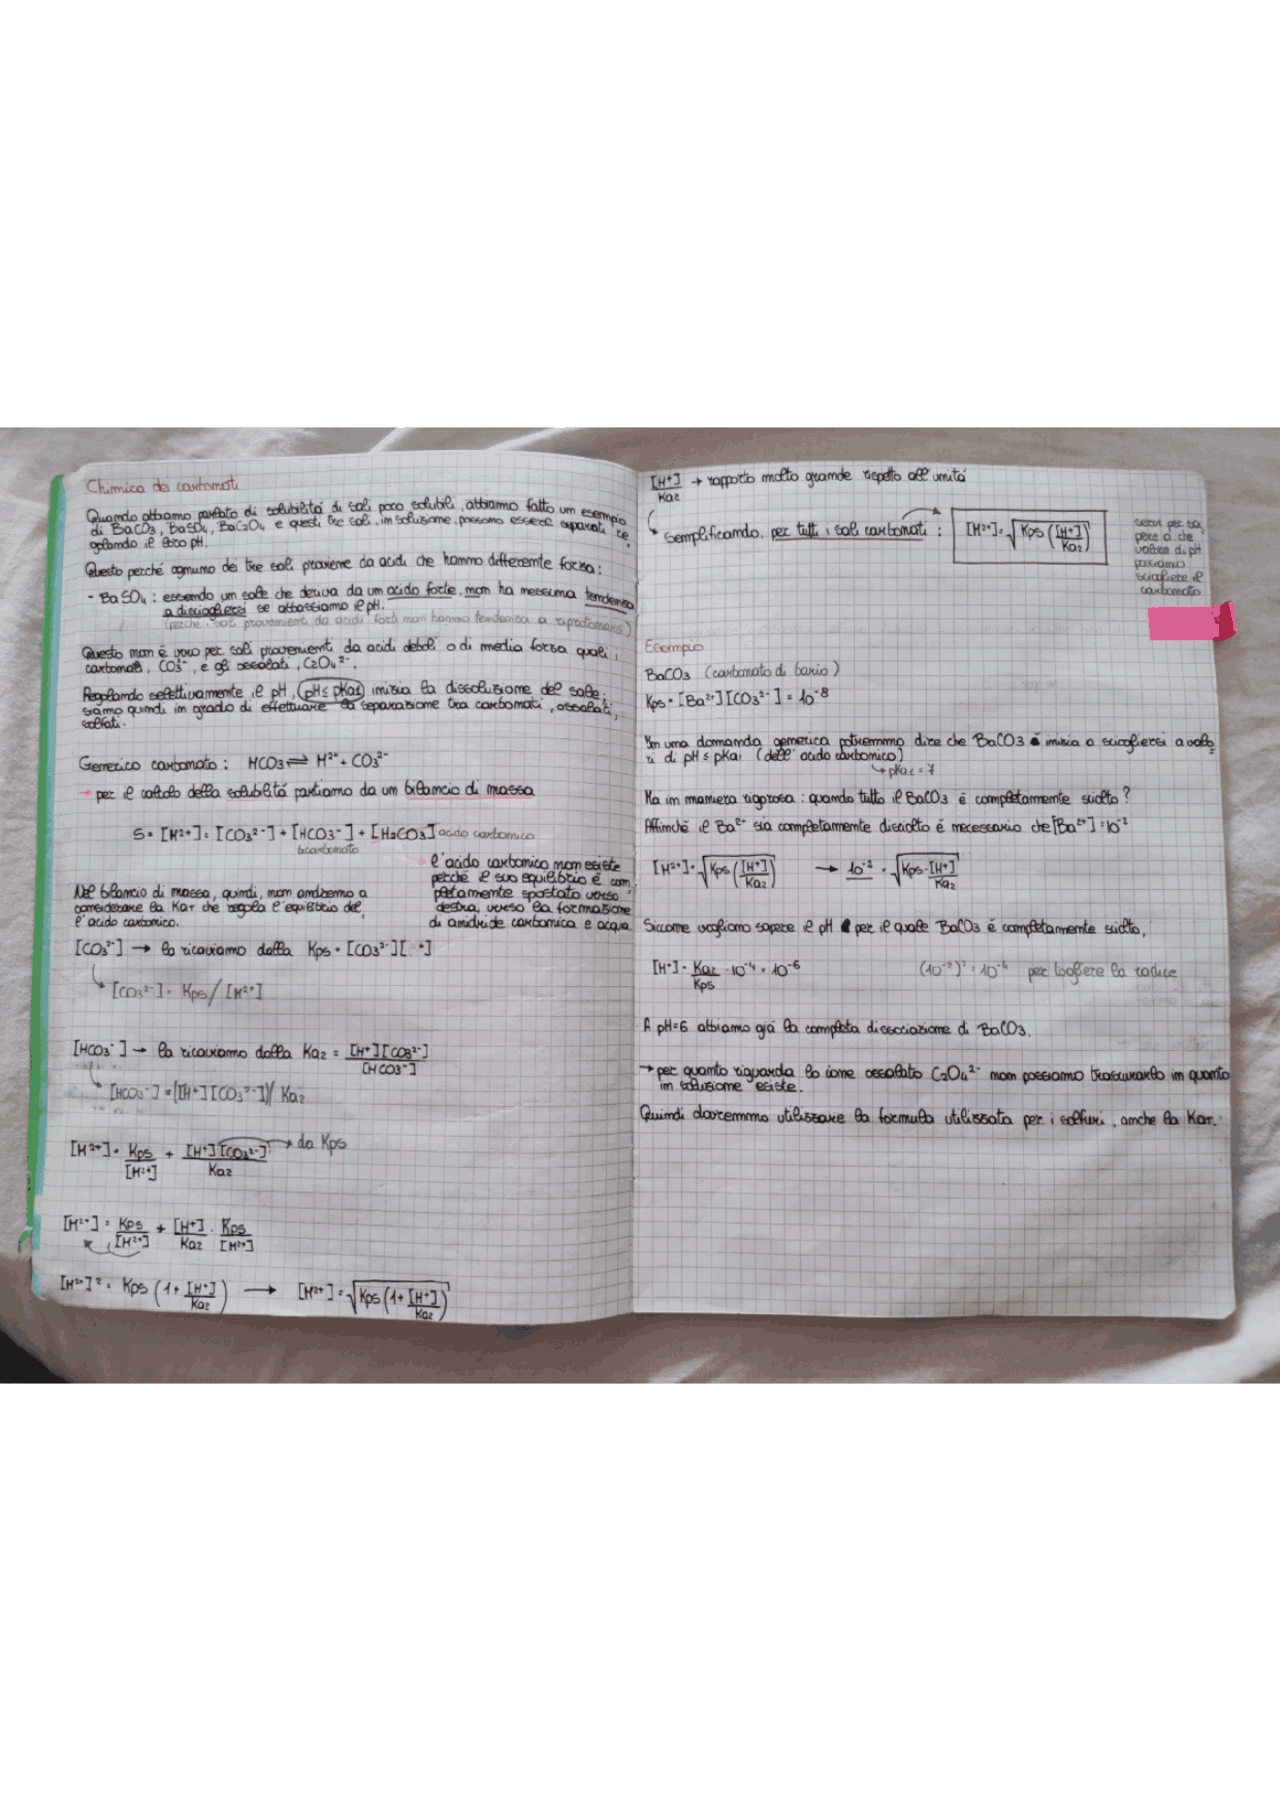 Chimica dei carbonati
Quando abbiamo parlato di solubilità di sali poco solubili, abbiamo fatto un esempio
di BaCO3, BaSO4, BaC2O4 e questi tre sali, in soluzione, possono essere separati re
golando il loro pH.
Questo perché ognuno dei tre sali proviene da acidi che hanno differente forza:
- BaSO4: essendo un sale che deriva da un acido forte, non ha nessuna tendenza
a disciogliersi se abbassiamo il pH.
(perché i sali provenienti da acidi forti non hanno tendenza a riprotonarsi)
Questo non è vero per sali provenienti da acidi deboli o di media forza quali i
carbonati, CO3²⁻, e gli ossalati, C2O4²⁻.
Regolando selettivamente il pH, (pH≤ pKa1) inizia la dissoluzione del sale;
siamo quindi in grado di effettuare la separazione tra carbonati, ossalati,
solfati.
Generico carbonato: MCO3 ⇌ M²⁺ + CO3²⁻
→ per il calcolo della solubilità partiamo da un bilancio di massa
S = [M²⁺] = [CO3²⁻] + [HCO3⁻] + [H2CO3] acido carbonico
bicarbonato
l'acido carbonico non esiste
perché il suo equilibrio è com
pletamente spostato verso
destra, verso la formazione
di anidride carbonica e acqua
Nel bilancio di massa, quindi, non andremo a
considerare la Ka1 che regola l'equilibrio del
l'acido carbonico.
[CO3²⁻] → la ricaviamo dalla Kps = [CO3²⁻][ ⁺]
[CO3²⁻] = Kps / [M²⁺]
[HCO3⁻] → la ricaviamo dalla Ka2 = [H⁺][CO3²⁻] / [HCO3⁻]
[HCO3⁻] = ([H⁺][CO3²⁻]) / Ka2
[M²⁺] = Kps / [M²⁺] + [H⁺][CO3²⁻] / Ka2 → da Kps
[M²⁺] = Kps / [M²⁺] + [H⁺] / Ka2 · Kps / [M²⁺]
[M²⁺]² = Kps (1 + [H⁺] / Ka2) → [M²⁺] = √Kps (1 + [H⁺] / Ka2)
[H⁺] / Ka2 → rapporto molto grande rispetto all'unità
Semplificando, per tutti i sali carbonati: [M²⁺] = √Kps ([H⁺] / Ka2)
per sa
pere a che
valore di pH
possiamo
sciogliere il
carbonato
Esempio
BaCO3 (carbonato di bario)
Kps = [Ba²⁺][CO3²⁻] = 10⁻⁸
In una domanda generica potremmo dire che BaCO3 inizia a sciogliersi a valo
ri di pH ≤ pKa1 (dell'acido carbonico)
→ pKa1 = 7
Ma in maniera rigorosa: quando tutto il BaCO3 è completamente sciolto?
Affinché il Ba²⁺ sia completamente disciolto è necessario che [Ba²⁺] = 10⁻²
[M²⁺] = √Kps ([H⁺] / Ka2) → 10⁻² = √Kps · [H⁺] / Ka2
Siccome vogliamo sapere il pH per il quale BaCO3 è completamente sciolto,
[H⁺] = Ka2 / Kps · 10⁻⁴ = 10⁻⁶ (10⁻²)² = 10⁻⁴ per togliere la radice
A pH=6 abbiamo già la completa dissociazione di BaCO3.
→ per quanto riguarda lo ione ossalato C2O4²⁻ non possiamo trascurarlo in quanto
in soluzione esiste.
Quindi dovremmo utilizzare la formula utilizzata per i solfuri, anche la Ka1.